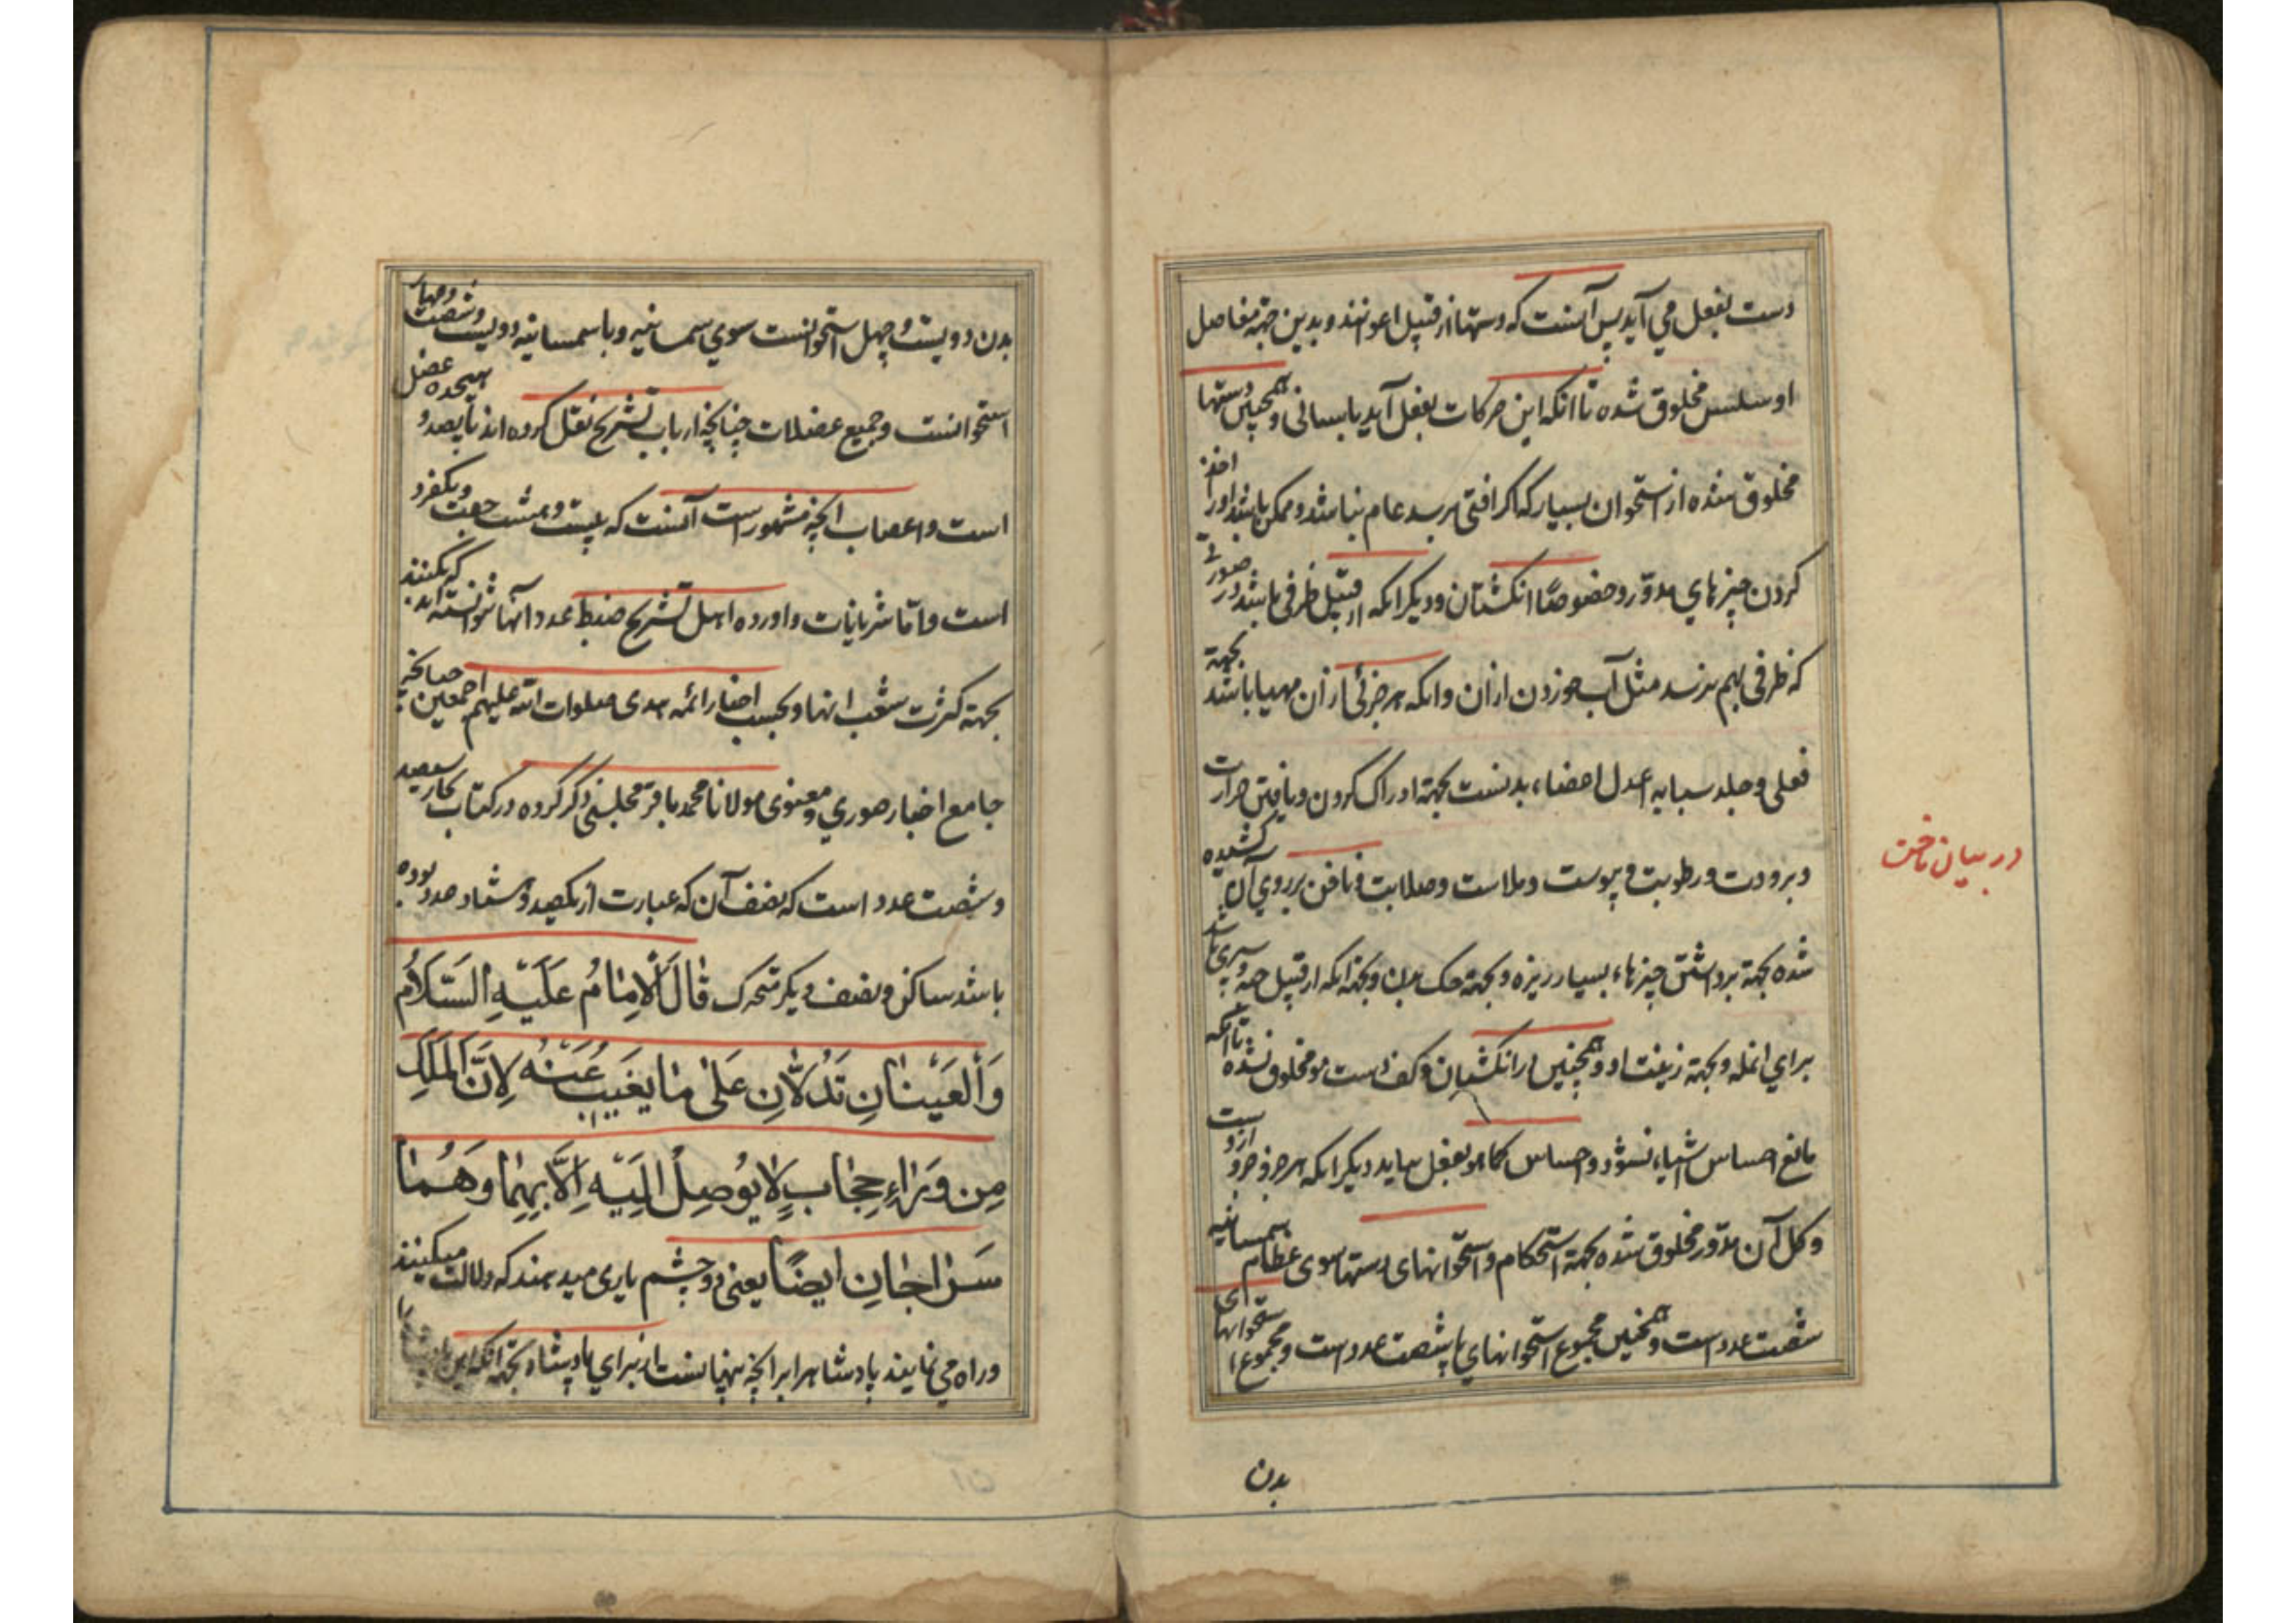 دست بفعل می آید پس آنست که دستها از قبیل اعوانند و بدین جهة مفاصل
او سلس مخلوق شده تا آنکه این حرکات بفعل آید بآسانی و همچنین دستها
مخلوق شده از استخوان بسیار که اگر آفتی برسد عام نباشد و ممکن باشد او را اخذ
کردن چیزهای مدوّر و خصوصًا انکشتان و دیکر آنکه از قبیل ظرفی باشد در صورتی
که ظرفی بهم نرسد مثل آب خوردن از آن و آنکه هر جزئی از آن مهیا باشد بجهة
فعلی و جلد سبابه اعدل اعضاء بدنست بجهة ادراک کردن و یافتن حرارت
و برودت و رطوبت و یبوست و ملاست و صلابت و ناخن بر روی آن کشیده
در بیان ناخن
شده بجهة برداشتن چیزهاء بسیار ریزه و بجهة حک بدن و بجهة آنکه از قبیل سپری باشد
برای انمله و بجهة زینت او و همچنین در انکشتان و کف دست مو مخلوق نشده تا آنکه
مانع احساس اشیاء نشود و احساس کما هو بفعل بیاید دیکر آنکه هر جزو جزو از دست
و کل آن مدوّر مخلوق شده بجهة استحکام و استخوانهای دستها سوی عظام سمسانیه
شصت عدد است و همچنین مجموع استخوانهای پا شصت عدد است و مجموع استخوانهای
بدن
بدن دویست و چهل استخوانست سوی سمسانیه و با سمسانیه دویست و شصت و چهار
استخوانست و جمیع عضلات چنانچه ارباب تشریح نقل کرده اند پانصد و هیجده عضل
است و اعصاب آنچه مشهور است آنست که بیست و هشت جفت و یکفرد
است و امّا شریانات و اورده اهل تشریح ضبط عدد آنها نتوانسته اند که بکنند
بجهة کثرت شعب آنها و بحسب اخبار ائمه هدی صلوات الله علیهم اجمعین چنانچه
جامع اخبار صوری و معنوی مولانا محمد باقر مجلسی ذکر کرده در کتاب بحار سیصد
و شصت عدد است که نصف آن که عبارت از یکصد و هشتاد عدد بوده
باشد ساکن و نصف دیکر متحرک قَالَ الْاِمَامُ عَلَيْهِ السَّلَامُ
وَالْعَيْنَانِ تَدُلَّانِ عَلىٰ مَا يَغِيبُ عَنْهُ لِاَنَّ الْمَلِكَ
مِن وَرَاءِ حِجَابٍ لَا يُوصِلُ اِلَيْهِ اِلَّا بِهِمَا وَهُمَا
سَرٰاجَانِ اَيضًا یعنی دو چشم یاری میدهند که دلالت میکنند
و راه می نمایند پادشاه را بر آنچه پنهانست از برای پادشاه بجهة آنکه این